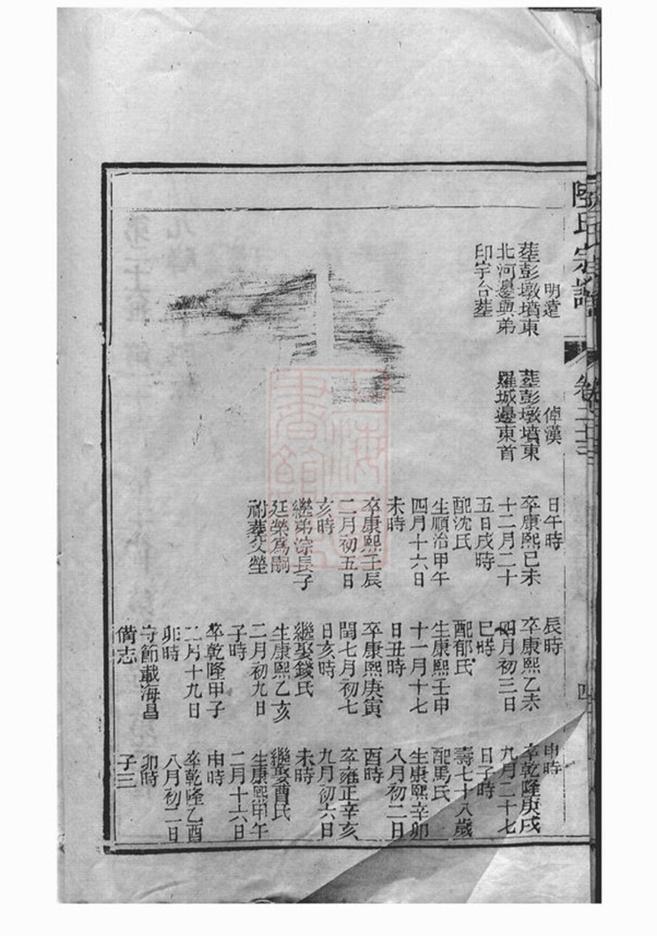 陳氏宗譜
卷之二十三
四
明遠
塟彭墩墳東
北河邊與弟
印宇台塟
倬漢
塟彭墩墳東
羅城邊東首
日午時
卒康熙己未
十二月二十
五日戌時
配沈氏
生順治甲午
四月十六日
未時
卒康熙壬辰
二月初五日
亥時
繼弟淙長子
廷榮爲嗣
祔塟父塋
辰時
卒康熙乙未
四月初三日
巳時
配郁氏
生康熙壬申
十一月十七
日丑時
卒康熙庚寅
閏七月初七
日亥時
繼娶錢氏
生康熙乙亥
二月初九日
子時
卒乾隆甲子
二月十九日
卯時
守節載海昌
備志
申時
卒乾隆庚戌
九月二十七
日子時
壽七十八歲
配馬氏
生康熙辛卯
八月初二日
酉時
卒雍正辛亥
九月初六日
未時
繼娶曹氏
生康熙甲午
二月十六日
申時
卒乾隆乙酉
八月初二日
卯時
子三